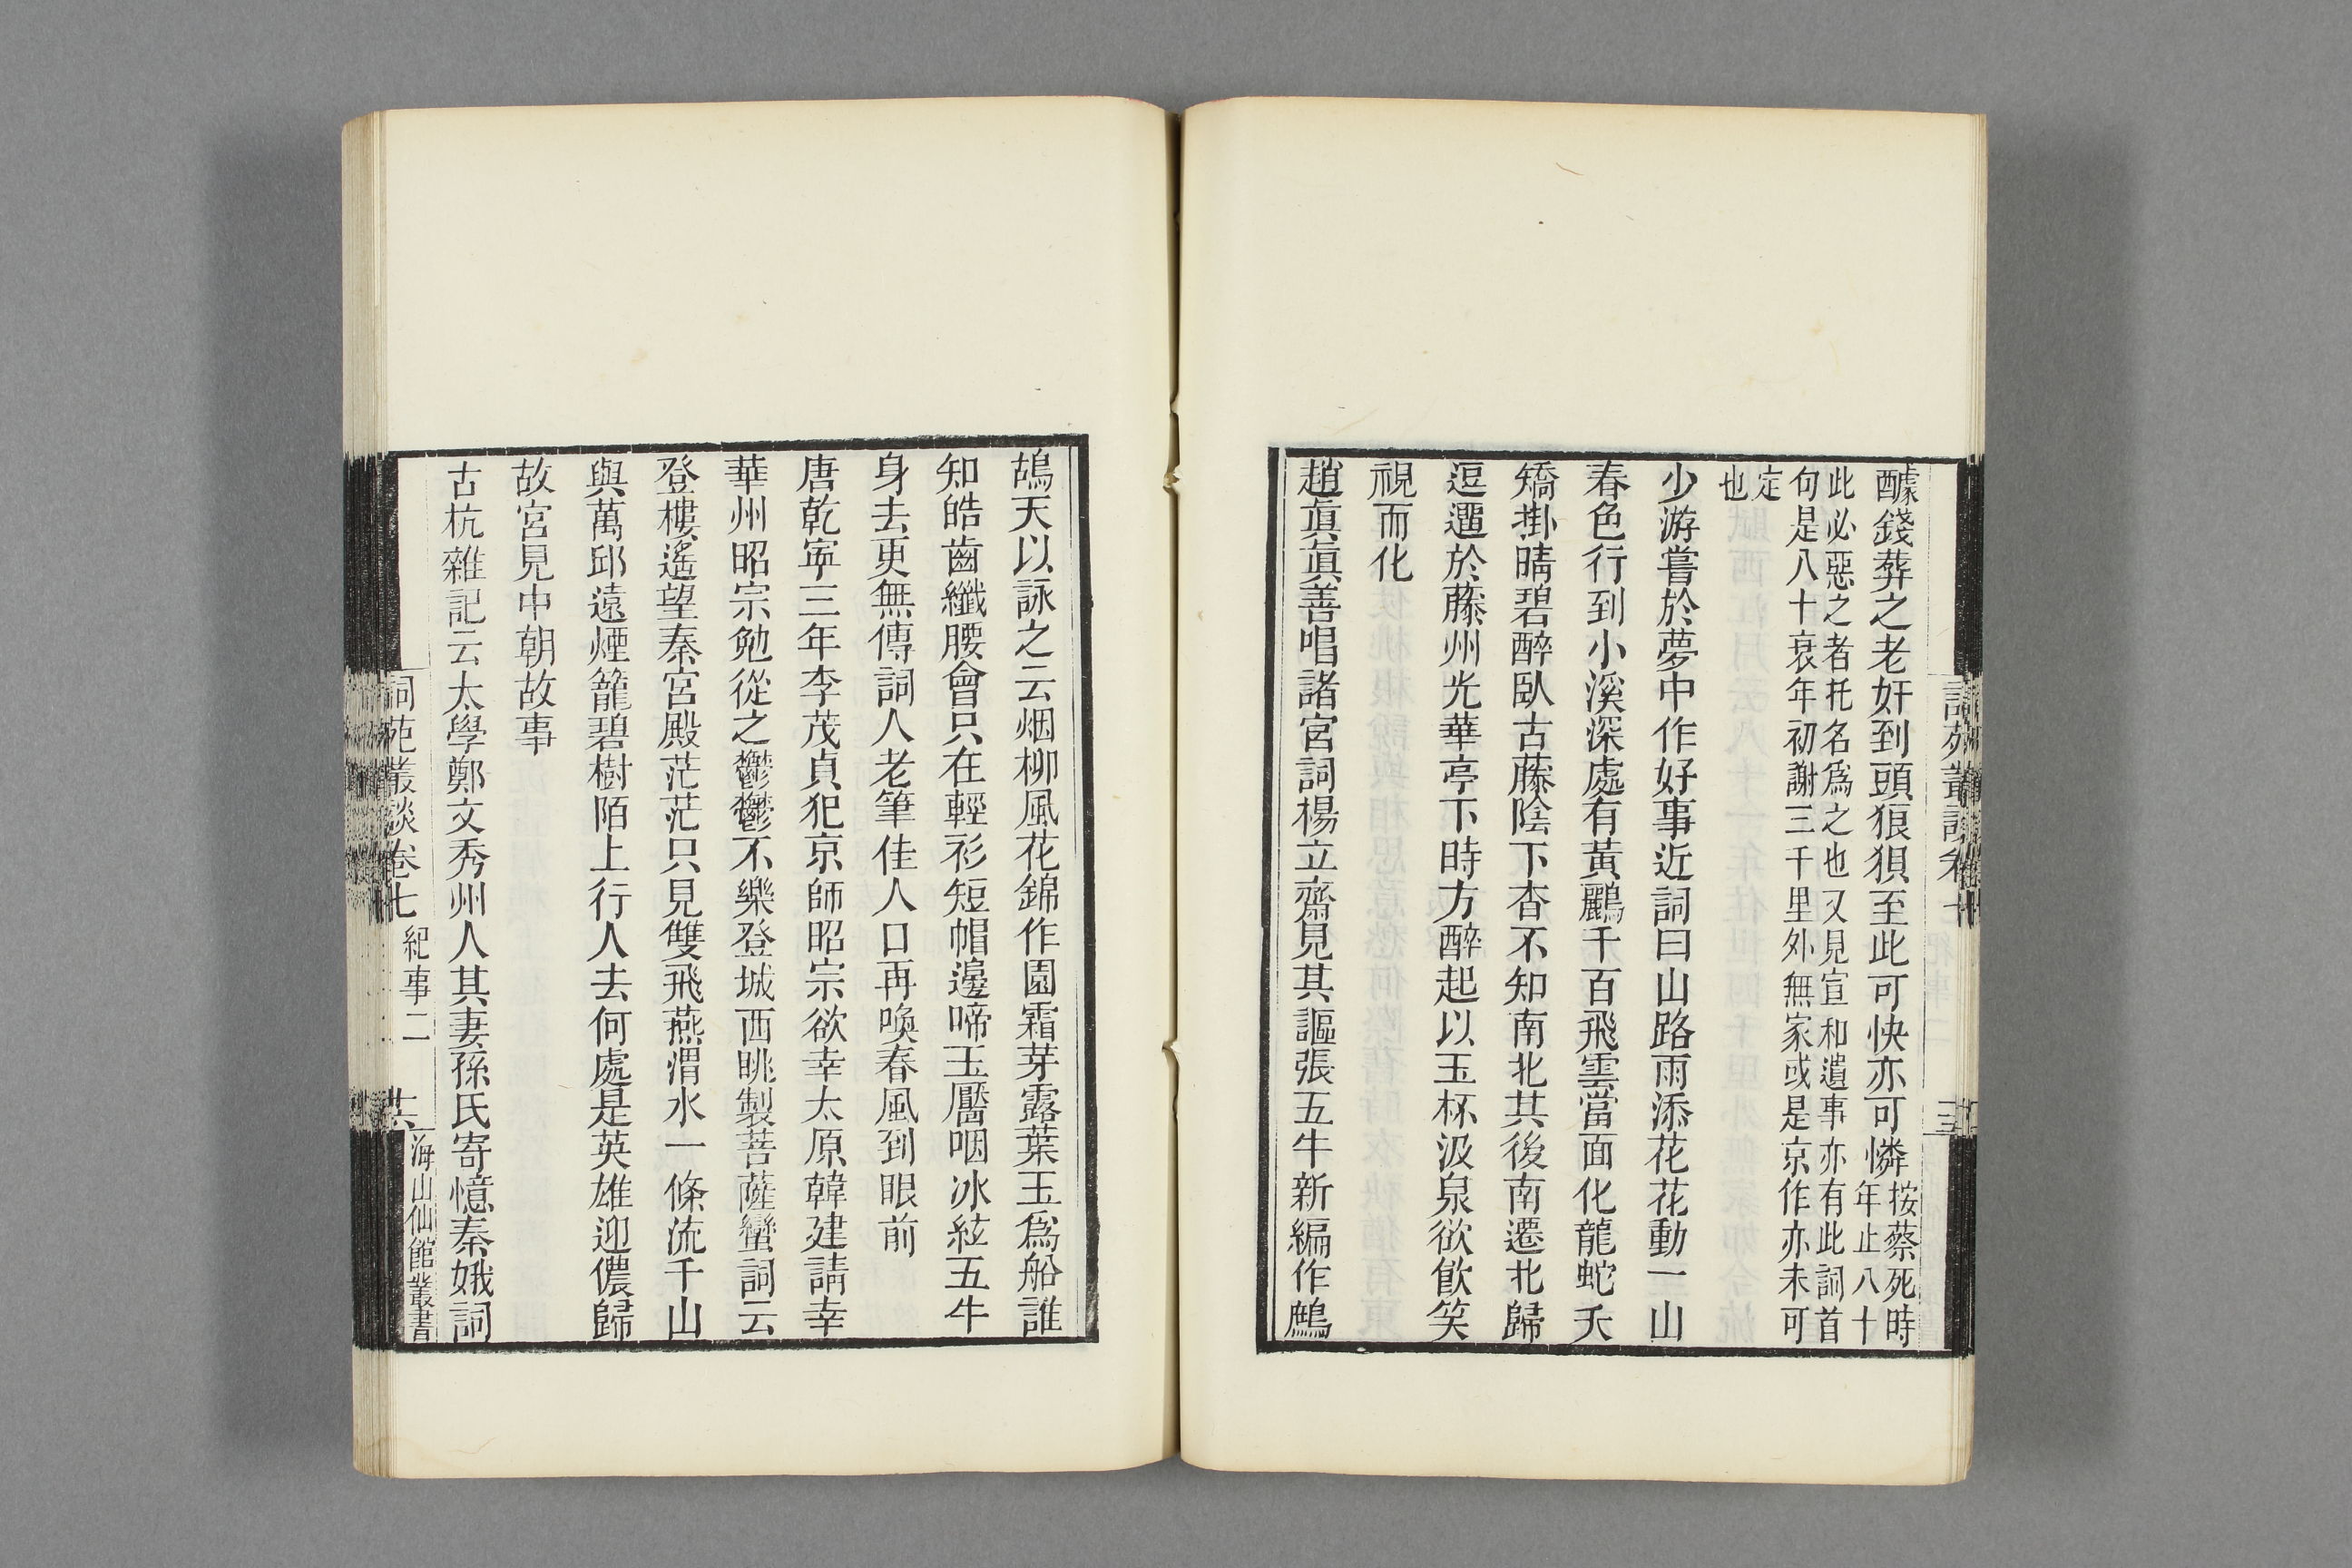 醵錢葬之老奸到頭狼狽至此可快亦可憐按蔡死時年止八十
此必惡之者托名爲之也又見宣和遺事亦有此詞首
句是八十衰年初謝三千里外無家或是京作亦未可
定
也
少游嘗於夢中作好事近詞曰山路雨添花花動一山
春色行到小溪深處有黃鸝千百飛雲當面化龍蛇夭
矯掛晴碧醉臥古藤陰下杳不知南北其後南遷北歸
逗遛於藤州光華亭下時方醉起以玉杯汲泉欲飲笑
視而化
趙眞眞善唱諸宮詞楊立齋見其謳張五牛新編作鷓
鴣天以詠之云烟柳風花錦作園霜芽露葉玉爲船誰
知皓齒纖腰會只在輕衫短帽邊啼玉靨咽冰絃五牛
身去更無傳詞人老筆佳人口再喚春風到眼前
唐乾寧三年李茂貞犯京師昭宗欲幸太原韓建請幸
華州昭宗勉從之鬱鬱不樂登城西眺製菩薩蠻詞云
登樓遙望秦宮殿茫茫只見雙飛燕渭水一條流千山
與萬邱遠煙籠碧樹陌上行人去何處是英雄迎儂歸
故宮見中朝故事
古杭雜記云太學鄭文秀州人其妻孫氏寄憶秦娥詞
詞苑叢談卷七 紀事二
海山仙館叢書